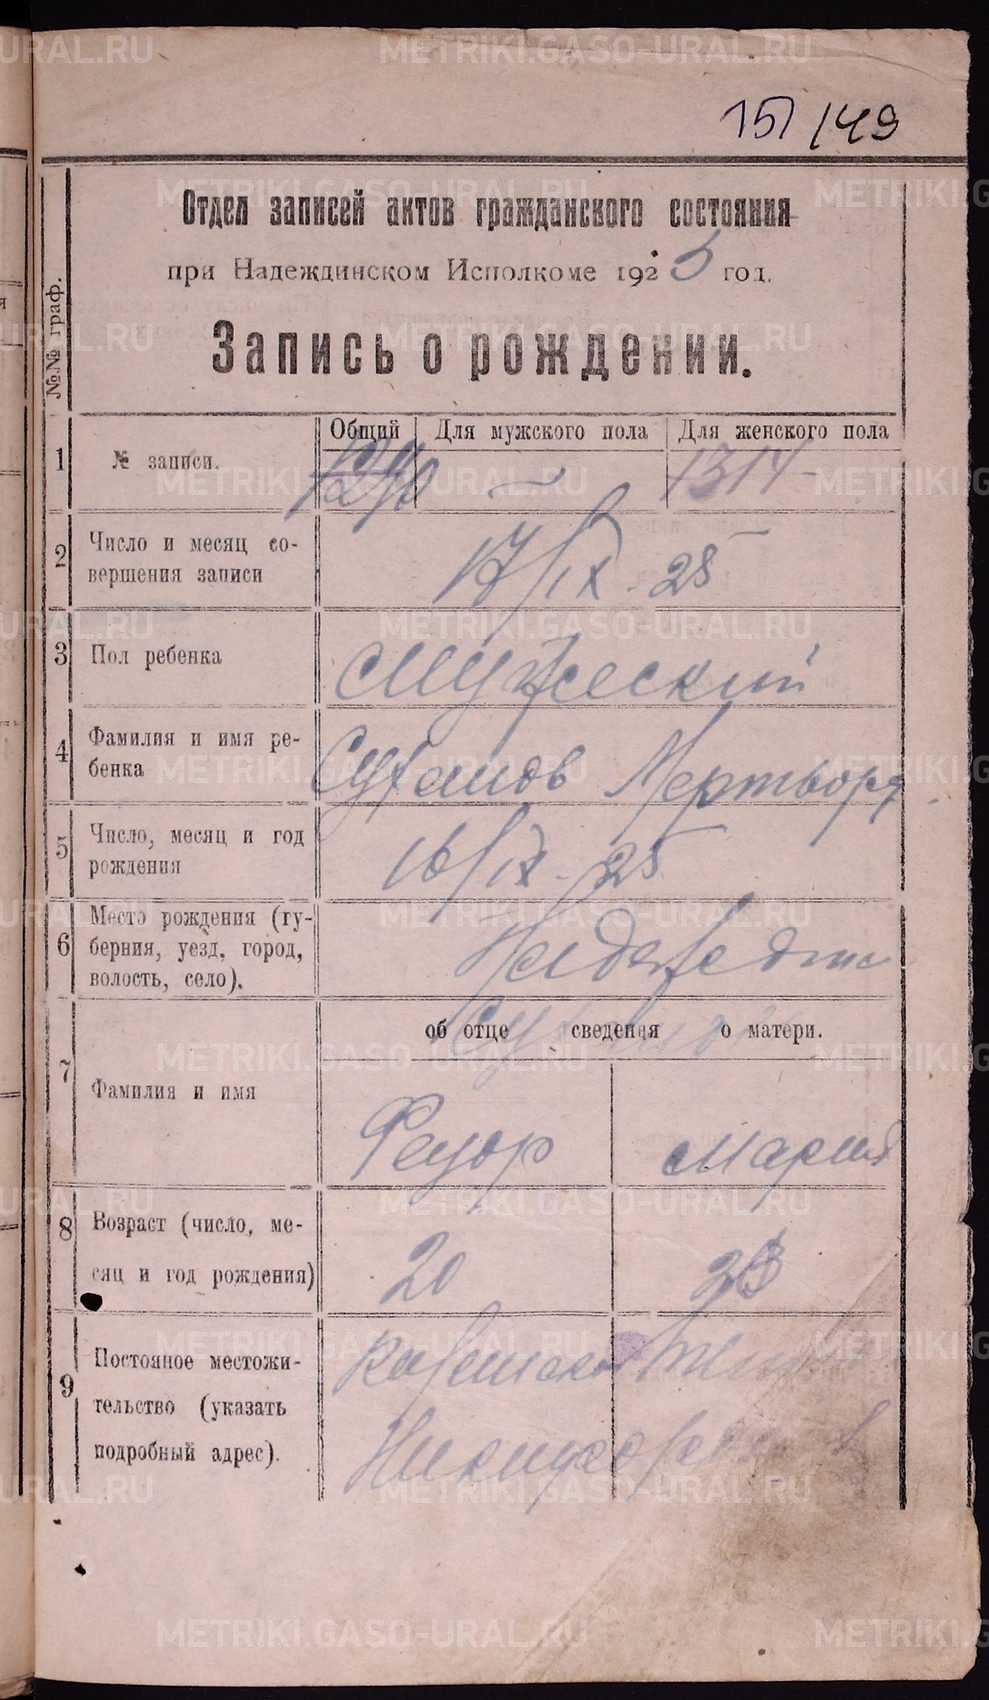 151 /49
Отдел записей актов гражданского состояния
при Надеждинском Исполкоме 1925 год.
Запись о рождении.
№№ граф.
Общий Для мужского пола Для женского пола
1 № записи. 1290 — 1314
2 Число и месяц со-
вершения записи
17/IX - 25
3 Пол ребенка Мужеский
4 Фамилия и имя ре-
бенка
Мертворд
5 Число, месяц и год
рождения
16/IX - 25
6 Место рождения (гу-
берния, уезд, город,
волость, село).
об отце сведения о матери.
7 Фамилия и имя
Федор Мария
8 Возраст (число, ме-
сяц и год рождения)
20 23
9 Постояное местожи-
тельство (указать
подробный адрес).
METRIKI.GASO-URAL.RU